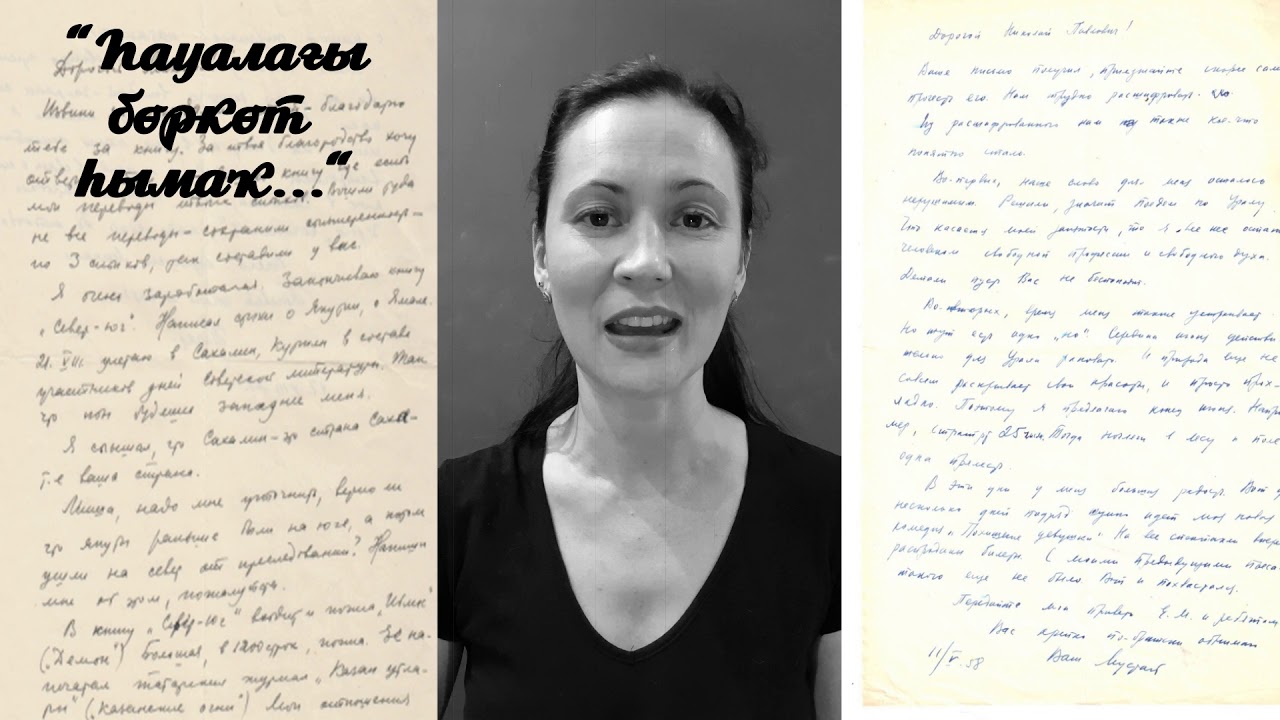 “Һауалағы
бөркөт
һымаҡ...“
Дорогой
Извини благодарю
тебя за книгу. За твое благородство хочу
книгу ще если
мои переводы твоих стихов.
не все переводы – сохранили
по 3 стихов, уже составили у вас.
Я очень заработался. Заканчиваю книгу
„Север-юг“. Написал стихи о Якутии, о Ямале.
21. VIII. улетаю в Сахалин, Курилы в составе
участников дней Советской литературы. Жаль
что ты будешь западнее меня.
Я слышал, что Сахалин – это страна саха –
т.е ваша страна.
Миша, надо мне уточнить, верно ли
что якуты раньше были на юге, а потом
ушли на север от преследований? Напиши
мне об этом, пожалуйста.
В книгу „Север-юг“ входит и поэма
(„Демон“) Большая, в 1200 строк, поэма. Ее на-
печатал татарский журнал „Казан утла-
ры“ („Казанские огни“) Мои отношения
Дорогой Николай Павлович!
Ваше письмо получил, приезжайте скорее сами
прочесть его. Нам трудно расшифровать.
Из расшифрованного нам также кое-что
понятно стало.
Во-первых, наше слово для меня осталось
нерушимым. Решили, значит поедем по Уралу.
Что касается моей занятости, то я все же остаюсь
человеком свободной профессии и свободного духа.
Детали пусть Вас не беспокоят.
Во-вторых, время меня также устраивает.
Но тут есть одно „но“. Середина июня действи-
тельно для Урала рановато. И природа еще не
совсем раскрывает свои красоты, и просто прох-
ладно. Поэтому я предлагаю конец июня. Напри-
мер, старт 25 июня. Тогда ночлеги в лесу и поле
одна прелесть.
В эти дни у меня большая радость. Вот уже
несколько дней подряд идет моя новая
комедия „Похищение девушки“. На все спектакли вперед
распроданы билеты. С моими предыдущими пьесами
такого еще не было. Вот и похвастался.
Передайте мой привет Е.М. и ребятам
Вас крепко по-братски обнимаю
11/V.58 Ваш Мустай